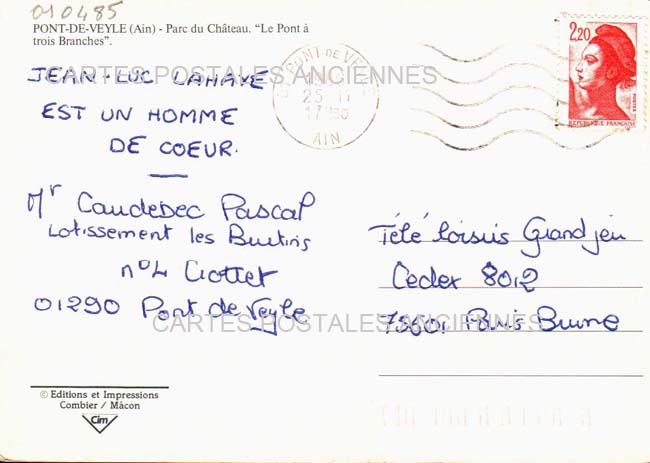 010485
PONT-DE-VEYLE (Ain) - Parc du Château. “Le Pont à
trois Branches”.
2,20
POSTES
REPUBLIQUE FRANÇAISE
PONT DE VEYLE
25-11
17H30
AIN
CARTES POSTALES ANCIENNES
JEAN-LUC LAHAYE
EST UN HOMME
DE COEUR.
Mr Caudebec Pascal
Lotissement les
n°4 Crottet
01290 Pont de Veyle
Télé loisirs Grand jeu
Cedex 8012
75601 Paris Brune
CARTES POSTALES ANCIENNES
© Editions et Impressions
Combier / Mâcon
Cim